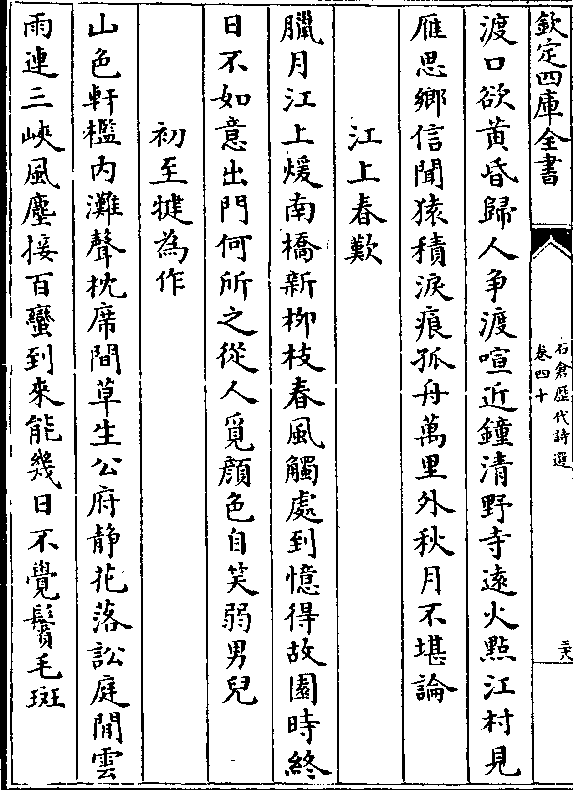 欽定四庫全書
石倉歷代詩選
卷四十
渡口欲黃昏歸人爭渡喧近鐘清野寺遠火點江村見
雁思鄉信聞猿積淚痕孤舟萬里外秋月不堪論
江上春歎
臘月江上煖南橋新栁枝春風觸處到憶得故園時終
日不如意出門何所之從人覓顔色自笑弱男兒
初至犍為作
山色軒檻内灘聲枕席間草生公府静花落訟庭閒雲
雨連三峽風塵接百蠻到來能幾日不覺鬢毛斑